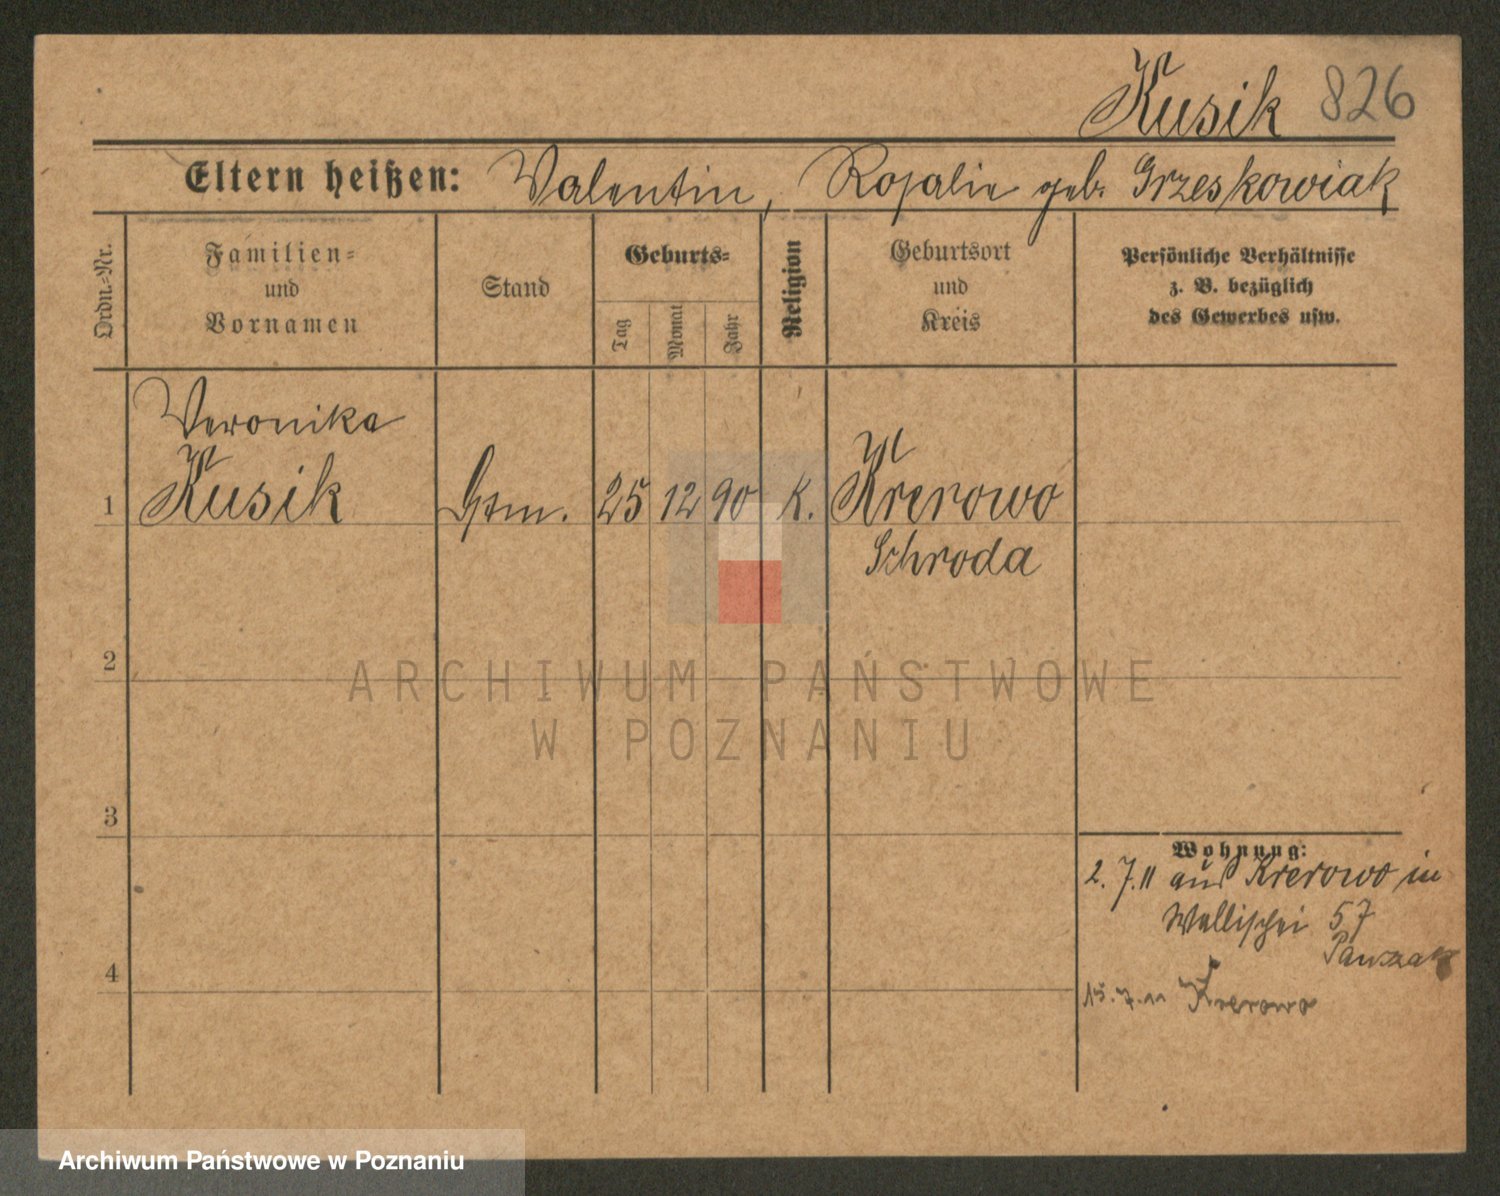 Kusik 826
Eltern heißen: Valentin, Rosalie geb. Grzeskowiak
Ordn.-Nr.
Familien-
und
Vornamen
Stand
Geburts-
Tag
Monat
Jahr
Religion
Geburtsort
und
Kreis
Persönliche Verhältnisse
z. B. bezüglich
des Gewerbes usw.
Veronika
1 Kusik 25 12 90 K. Krerowo
Schroda
2
3
4
Wohnung:
2. 7. 11 aus Krerowo in
Wallischei 57
15. 7. 11 Krerowo
ARCHIWUM PAŃSTWOWE
W POZNANIU
Archiwum Państwowe w Poznaniu